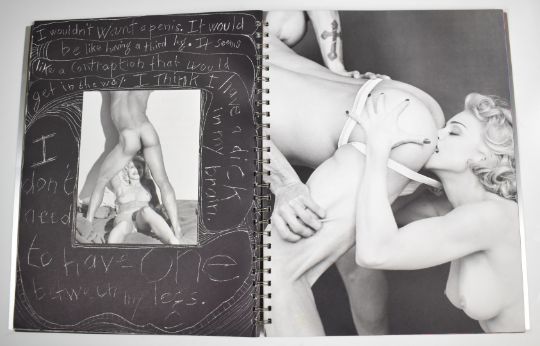 I wouldn't want a penis. It would
be like having a third leg. It seems
like a contraption that would
get in the way. I think I
have a dick
in my brain.
I
don't
need
to have one
between my legs.